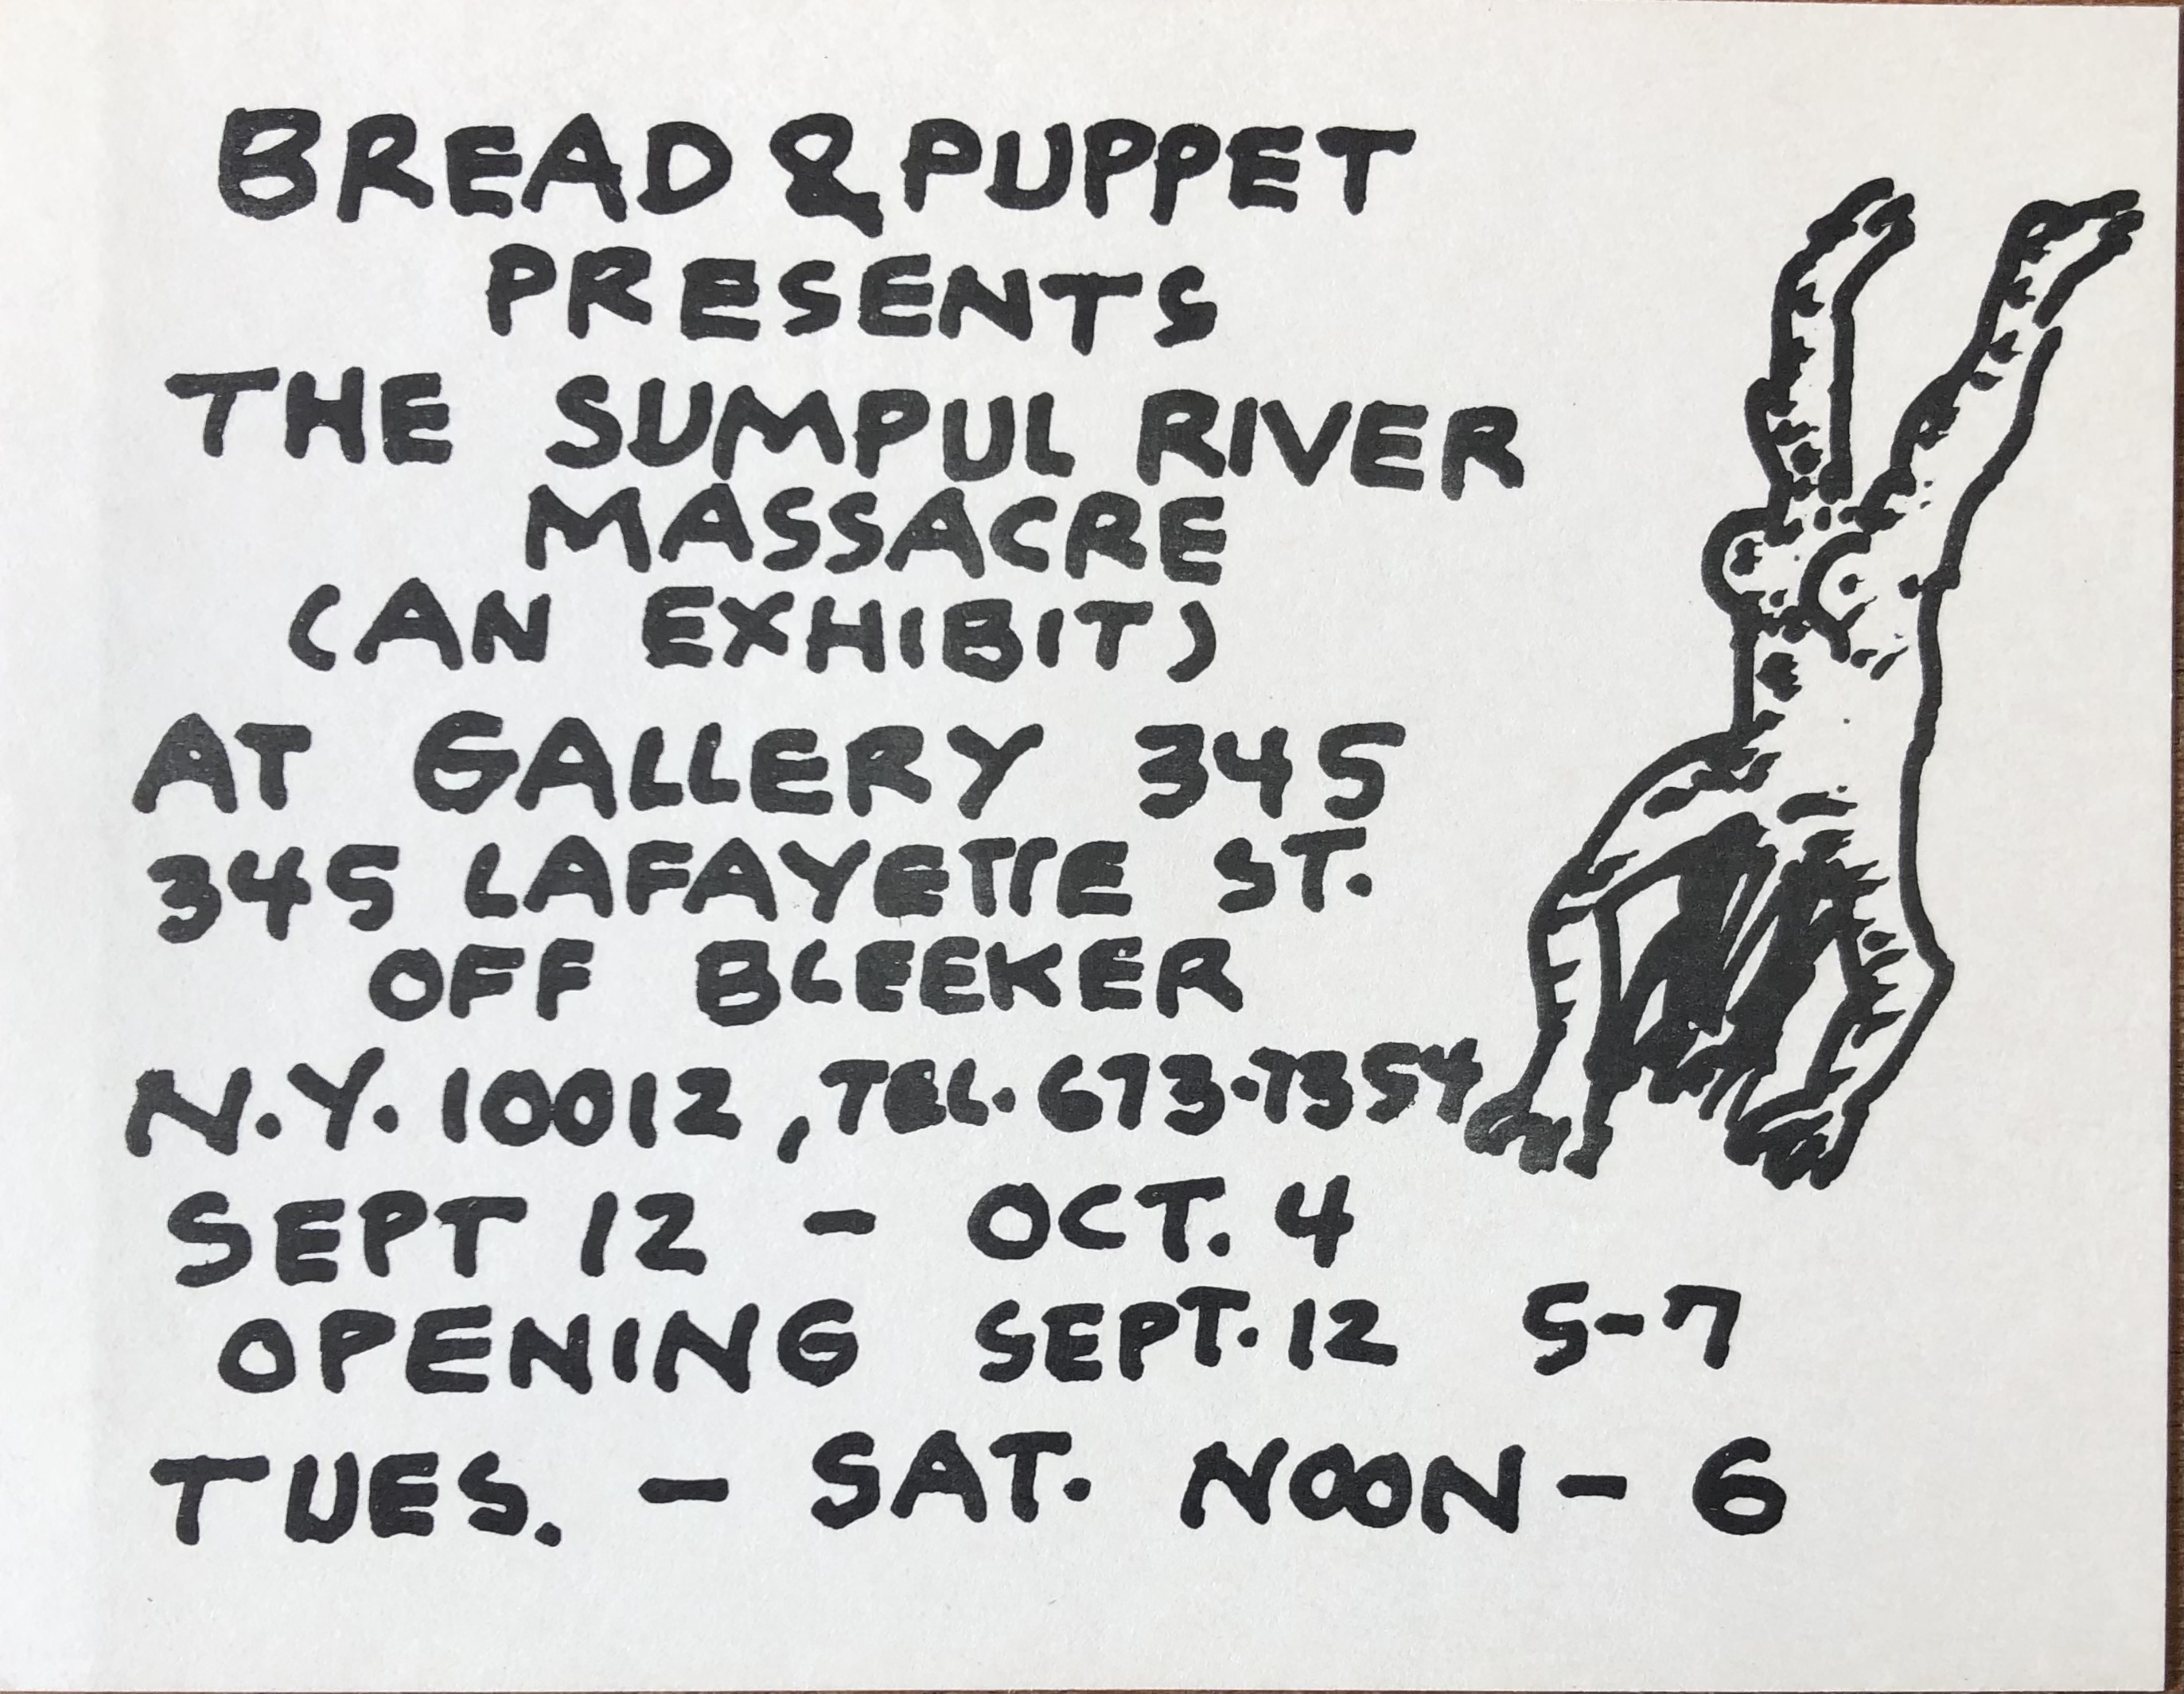 BREAD & PUPPET
PRESENTS
THE SUMPUL RIVER
MASSACRE
(AN EXHIBIT)
AT GALLERY 345
345 LAFAYETTE ST.
OFF BLEEKER
N.Y. 10012, TEL. 673-7354
SEPT 12 - OCT. 4
OPENING SEPT. 12 5-7
TUES. - SAT. NOON - 6